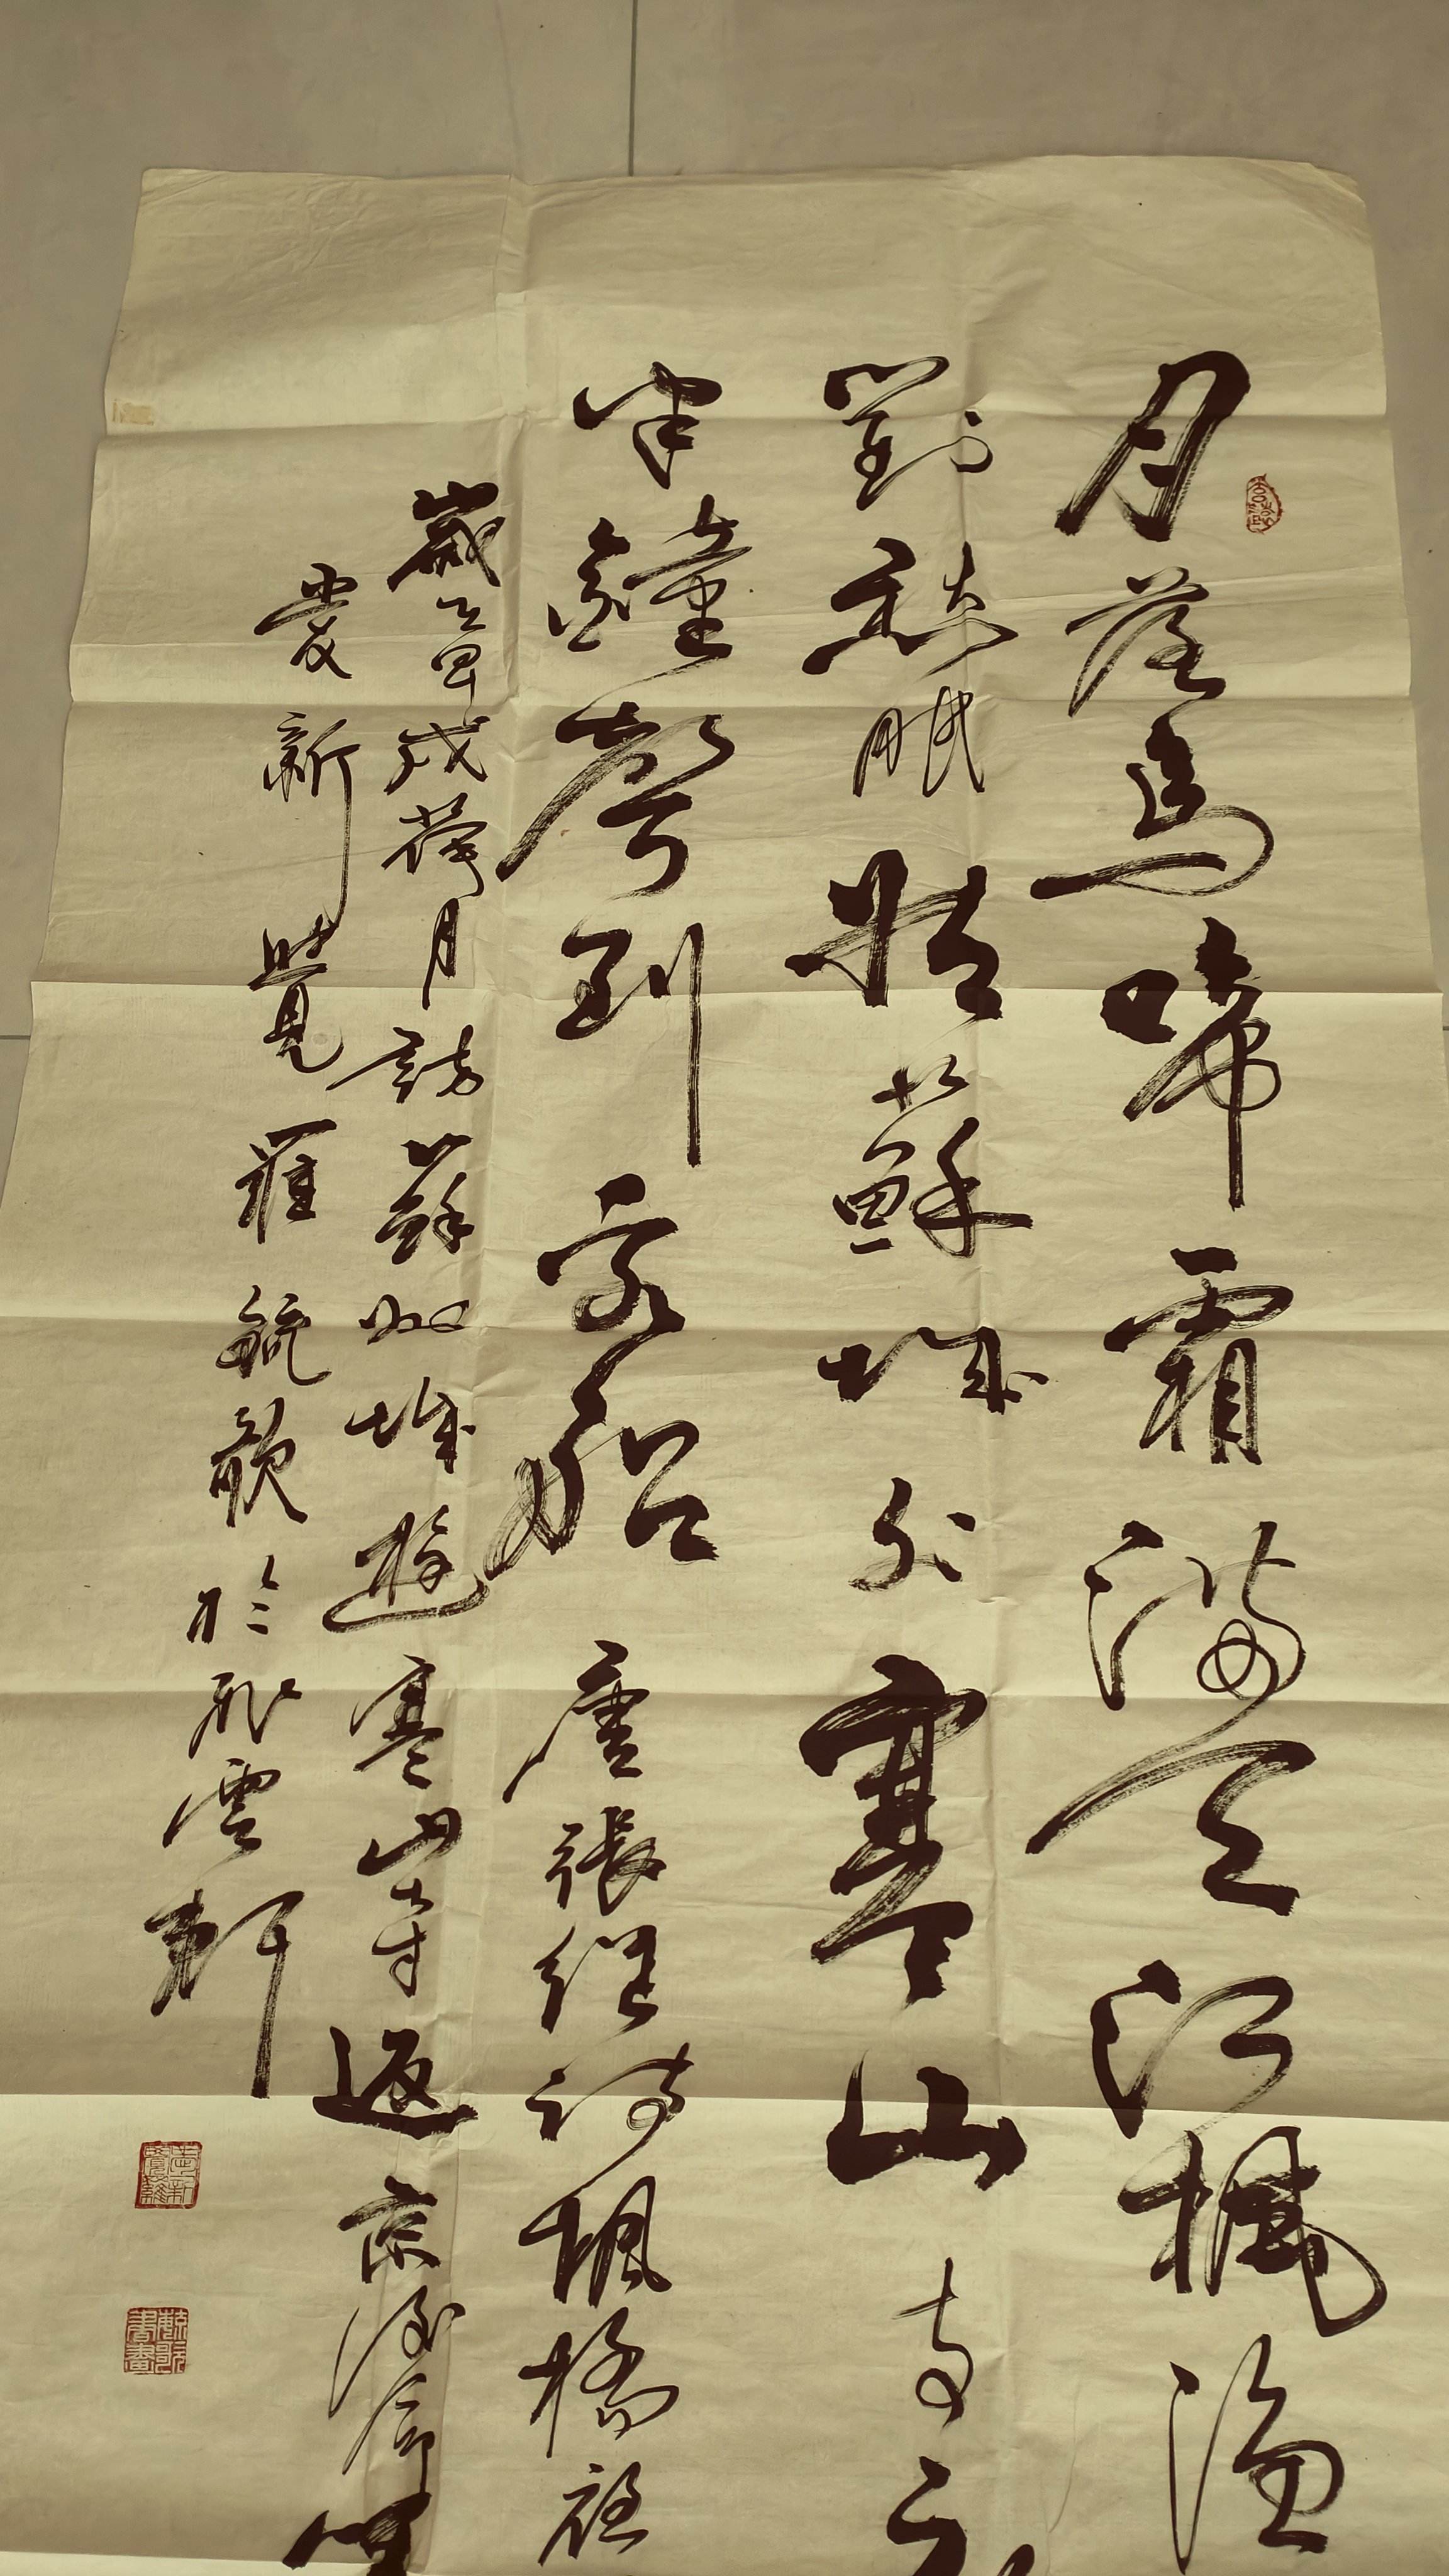 月落烏啼霜滿天江楓漁
對愁眠姑蘇城外寒山寺夜
半鐘聲到客船 唐張繼詩楓橋夜
歲在甲戌荷月訪蘇州城遊寒山寺返京後命
愛新覺羅毓歆於飛雲軒